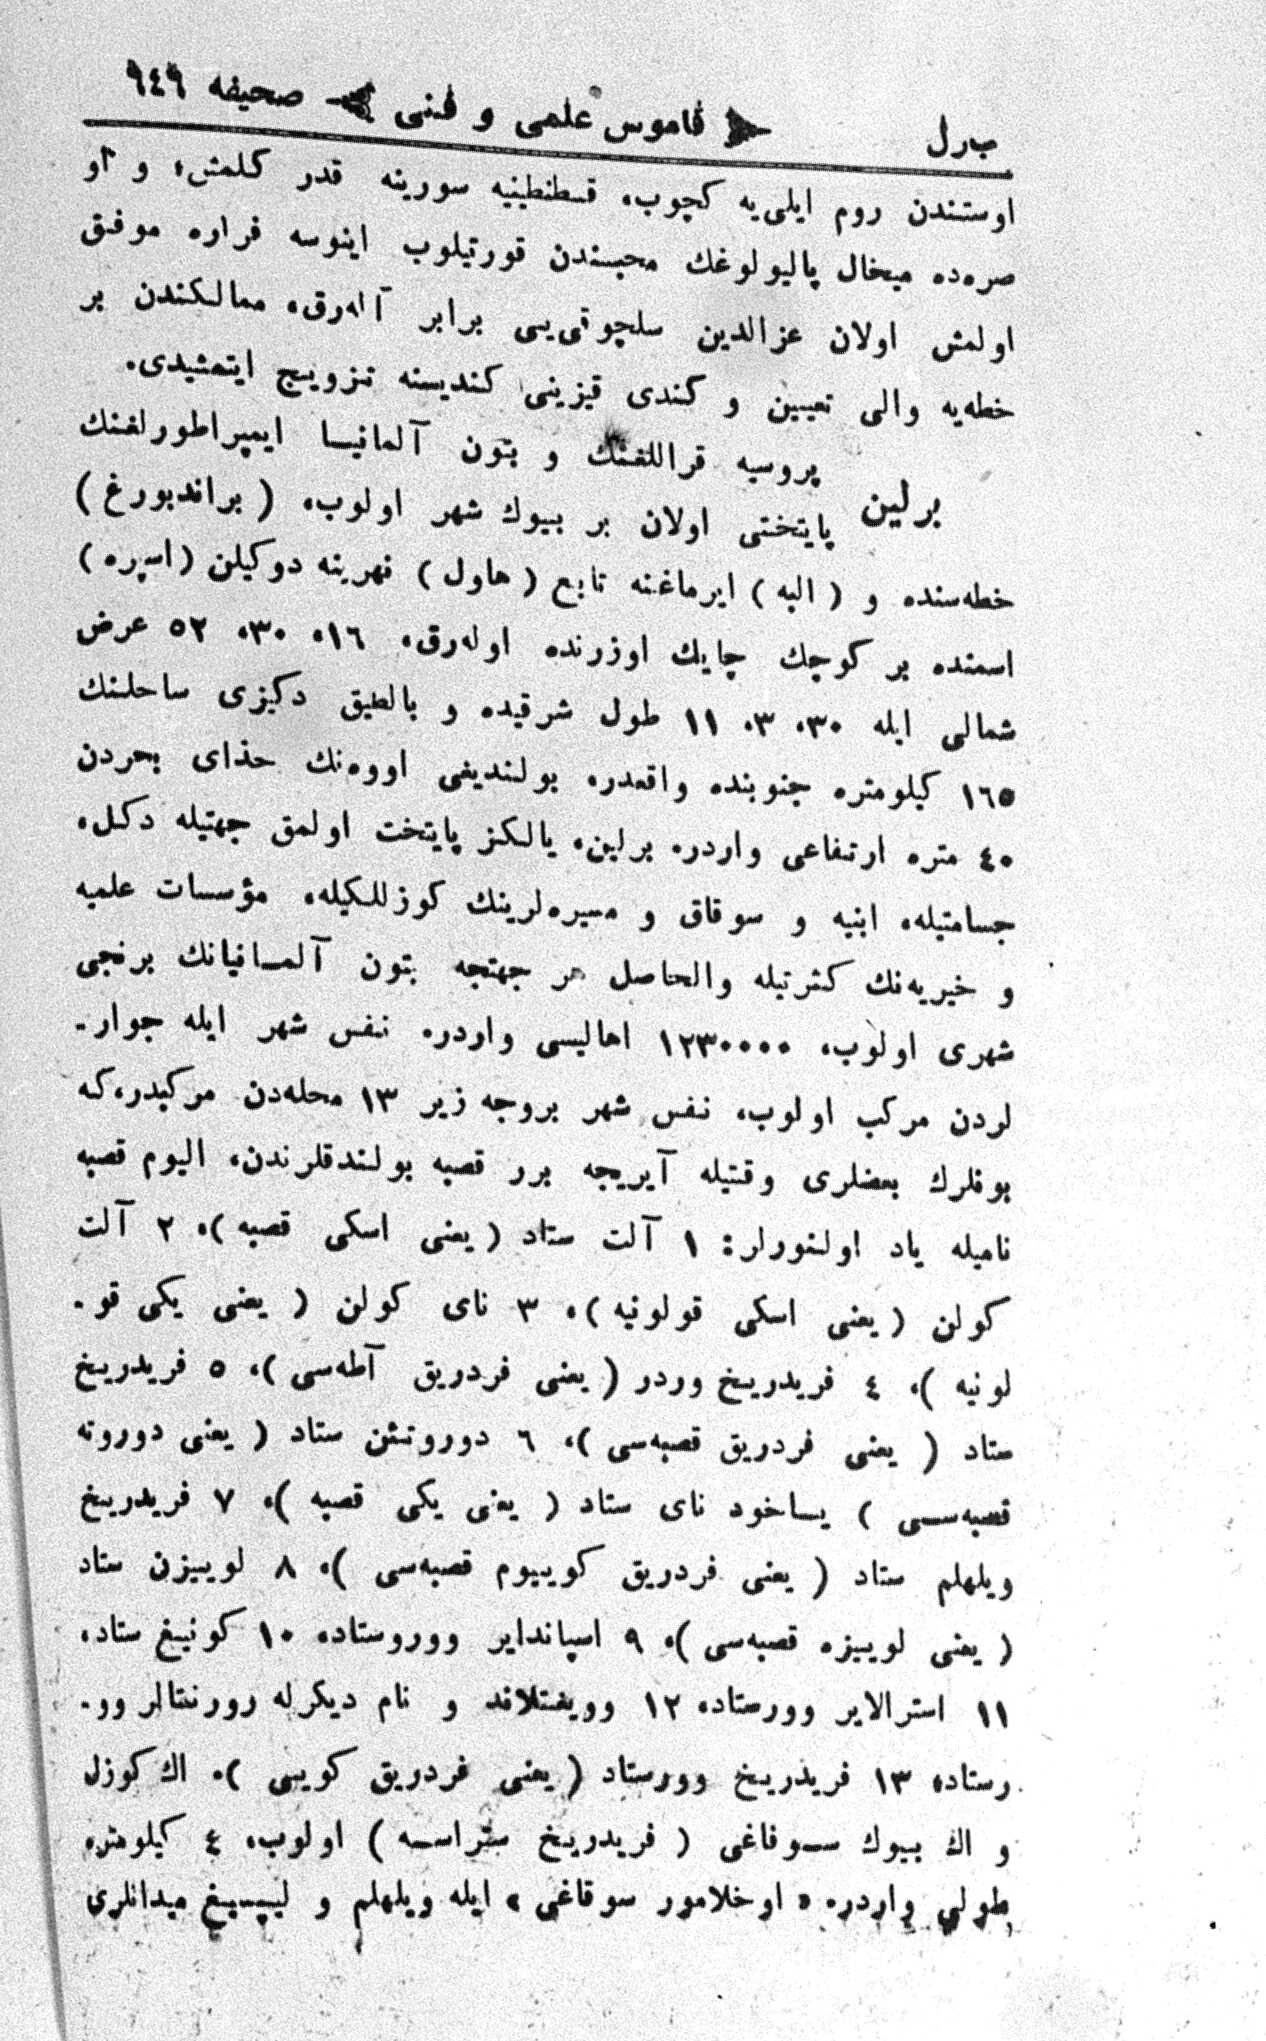 برل ﴿ قاموس علمی و فنی ﴾ صحیفه ٩٤٩
اوستندن روم ایلی‌یه کچوب، قسطنطینیه سورینه قدر کلمش، و او
صره‌ده میخال پالیولوغك محبسندن قورتیلوب اینوسه فراره موفق
اولمش اولان عزالدین سلچوقی‌یی برابر آله‌رق، ممالکندن بر
خطه‌یه والی تعیین و کندی قیزینی کندیسنه تزویج ایتمشیدی.
پروسیه قراللغنك و بتون آلمانیا ایمپراطورلغنك
برلین پایتختی اولان بر بیوك شهر اولوب، ( براندبورغ )
خطه‌سنده و ( البه ) ایرماغنه تابع ( هاول ) نهرینه دوکیلن ( اسپره )
اسمنده بر کوچك چایك اوزرنده اوله‌رق، ١٦، ٣٠، ٥٢ عرض
شمالی ایله ٣٠، ٣، ١١ طول شرقیده و بالطیق دکیزی ساحلنك
١٦٥ کیلومتره جنوبنده واقعدر. بولندیغی اووه‌نك حذای بحردن
٤٠ متره ارتفاعی واردر. برلین، یالکز پایتخت اولمق جهتیله دکل،
جسامتیله، ابنیه و سوقاق و مسیره‌لرینك کوزللکیله، مؤسسات علمیه
و خیریه‌نك کثرتیله والحاصل هر جهتجه بتون آلمانیانك برنجی
شهری اولوب، ١٢٣٠٠٠٠ اهالیسی واردر. نفس شهر ایله جوار-
لردن مرکب اولوب، نفس شهر بروجه زیر ١٣ محله‌دن مرکبدر، که
بونلرك بعضلری وقتیله آیریجه برر قصبه بولندقلرندن، الیوم قصبه
نامیله یاد اولنورلر: ١ آلت ستاد ( یعنی اسکی قصبه )، ٢ آلت
کولن ( یعنی اسکی قولونیه )، ٣ نای کولن ( یعنی یکی قو-
لونیه )، ٤ فریدریخ وردر ( یعنی فردریق آطه‌سی )، ٥ فریدریخ
ستاد ( یعنی فردریق قصبه‌سی )، ٦ دوروتئن ستاد ( یعنی دوروته
قصبه‌سی ) یاخود نای ستاد ( یعنی یکی قصبه )، ٧ فریدریخ
ویلهلم ستاد ( یعنی فردریق کوییوم قصبه‌سی )، ٨ لوییزن ستاد
( یعنی لوییزه قصبه‌سی )، ٩ اسپاندایر ووروستاد، ١٠ کونیغ ستاد،
١١ استرالایر وورستاد، ١٢ وویغتلاند و نام دیکرله روزنتالر وو-
رستاد، ١٣ فریدریخ وورستاد ( یعنی فردریق کویی ). اك کوزل
و اك بیوك سوقاغی ( فریدریخ ستراسه ) اولوب، ٤ کیلومتره
طولی واردر. « اوخلامور سوقاغی » ایله ویلهلم و لیپسیغ میدانلری